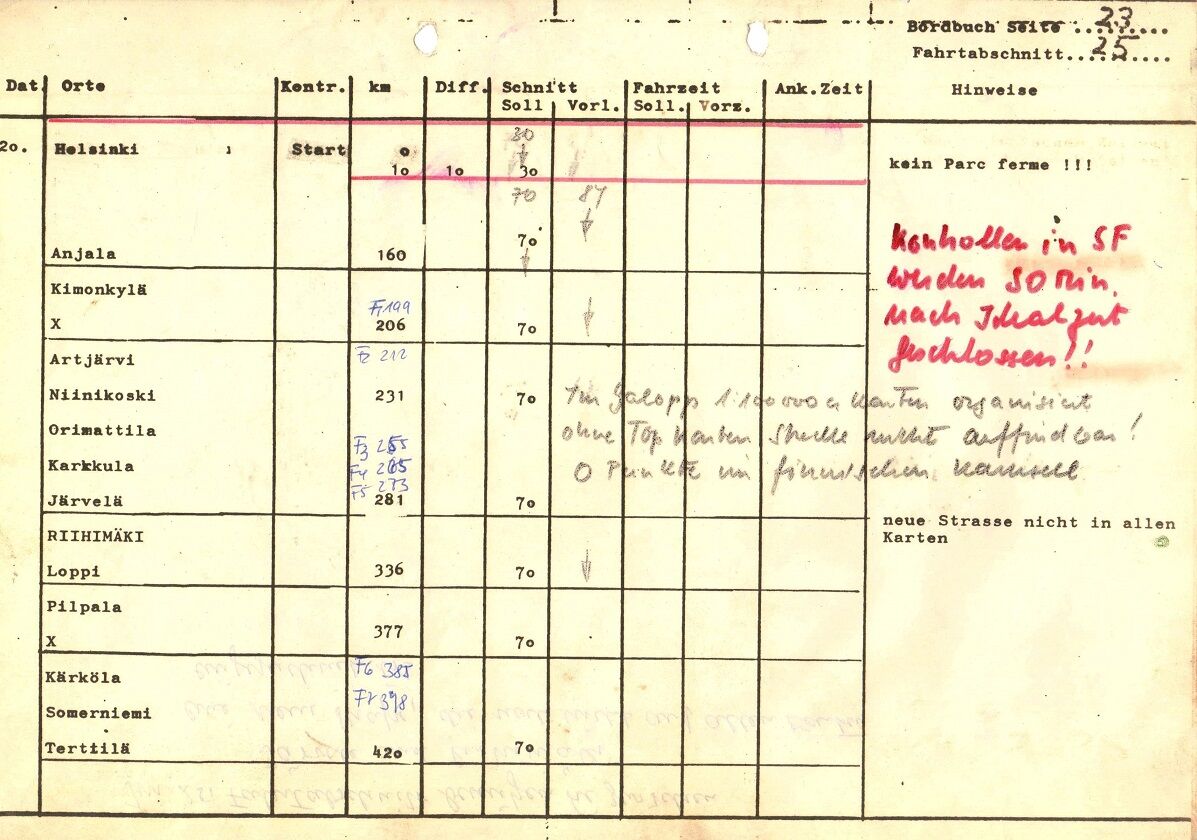 Bordbuch Seite 23
Fahrtabschnitt 25
Dat. Orte Kontr. km Diff. Schnitt Fahrzeit Ank.Zeit Hinweise
Soll Vorl. Soll. Vorz.
30
2o. Helsinki Start o
kein Parc ferme !!!
1o 1o 3o
70 84
7o
Anjala 160
Kontrollen in SF
werden 30 Min.
nach Idealzeit
geschlossen!!
Kimonkylä
F1 199
X 206 7o
Artjärvi F2 212
Niinikoski 231 7o
Im Galopp 1:100000er Karten organisiert
Orimattila
ohne Top Karten Strecke nicht auffindbar!
F3 255
Karkkula F4 265
0 Punkte im finnischen Karussell
F5 273
Järvelä 281 7o
neue Strasse nicht in allen
Karten
RIIHIMÄKI
Loppi 336 7o
Pilpala
X 377 7o
Kärköla F6 385
Somerniemi F7 398
Tertiilä 42o 7o